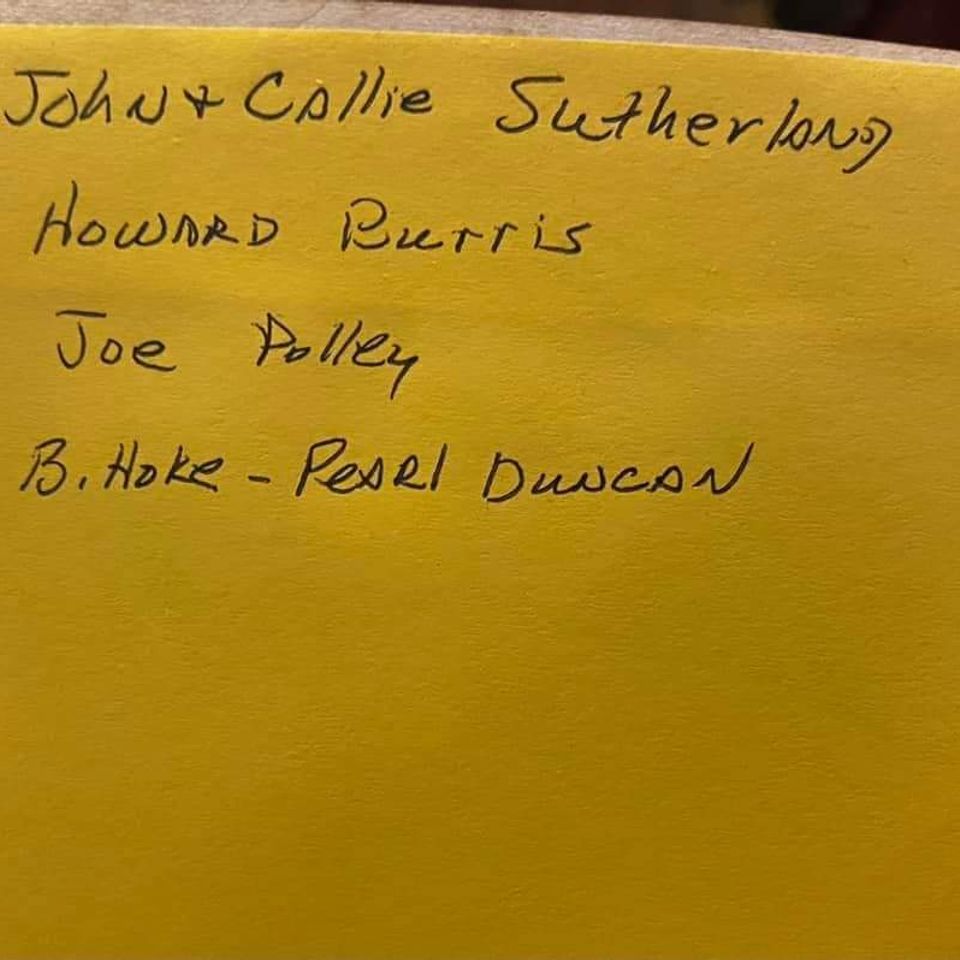 John + Callie Sutherland
Howard Burris
Joe Polley
B. Hoke - Pearl Duncan